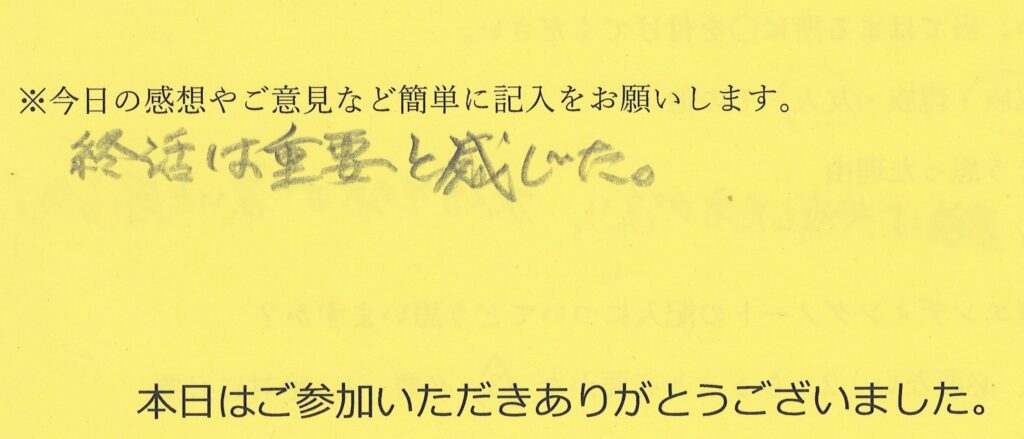 ※今日の感想やご意見など簡単に記入をお願いします。
終活は重要と感じた。
本日はご参加いただきありがとうございました。